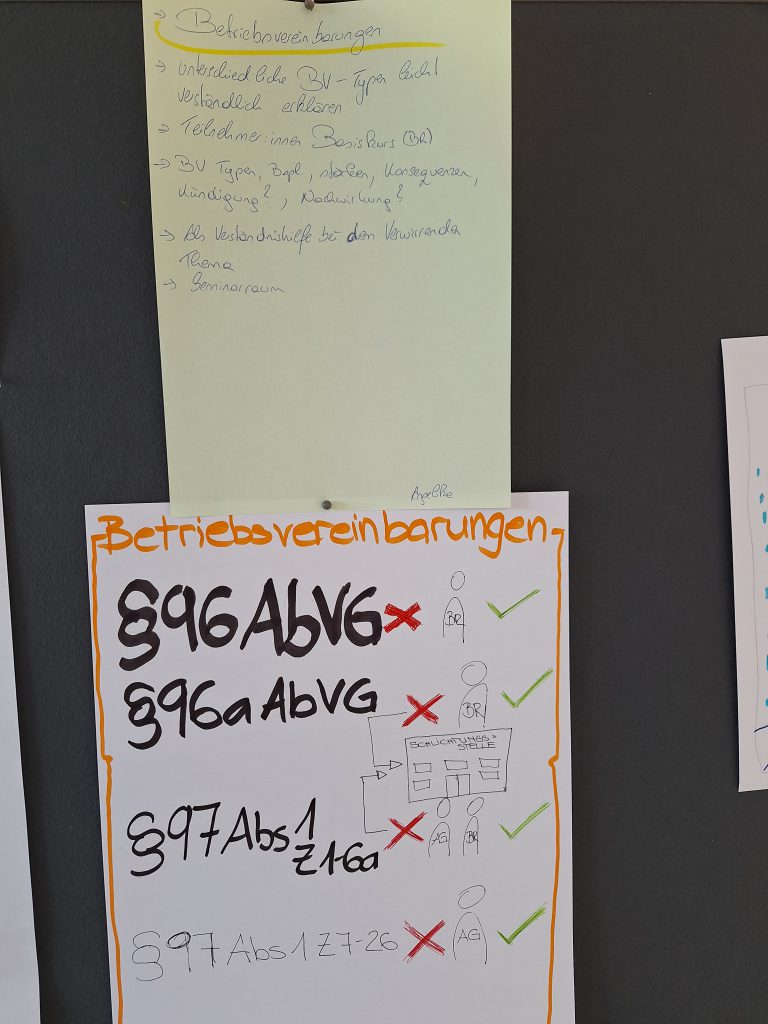 → Betriebsvereinbarungen
→ unterschiedliche BV-Typen leicht
verständlich erklären
→ Teilnehmer:innen Basiskurs (BR)
→ BV Typen, Bspl., stärken, Konsequenzen,
Kündigung?, Nachwirkung?
→ Als Verständnishilfe bei dem Verwirrenden
Thema
→ Seminarraum
Betriebsvereinbarungen
§96 AbVG
BR
§96a AbVG
BR
SCHLICHTUNGS=
STELLE
§97 Abs 1
Z1-6a
AG BR
§97 Abs 1 Z7-26
AG